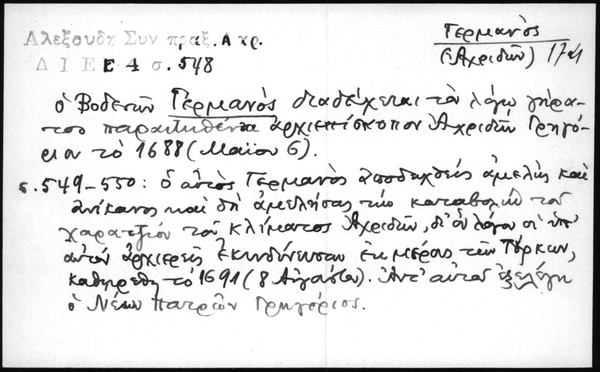 Αλεξουδη Συν πραξ. Αχρ.
Δ Ι Ε Ε 4 σ. 548
Γερμανὸς
(Ἀχριδῶν)
ὁ Βοδενῶν Γερμανὸς διαδέχεται τὸν λόγῳ γήρα-
τος παραιτηθέντα ἀρχιεπίσκοπον Ἀχριδῶν Γρηγό-
ριον τὸ 1688 (Μαΐου 6).
σ. 549-550: ὁ αὐτὸς Γερμανὸς ἀποδειχθεὶς ἀμελὴς καὶ
ἀνίκανος καὶ δὴ ἀμελήσας τὴν καταβολὴν τοῦ
χαρατζίου τοῦ κλίματος Ἀχριδῶν, δι' ὃν λόγον οἱ ὑπ'
αὐτὸν ἀρχιερεῖς ἐκινδύνευσαν ἐκ μέρους τῶν Τούρκων,
καθῃρέθη τὸ 1691 (8 Αὐγούστου). Ἀντ' αὐτοῦ ἐξελέγη
ὁ Νέων Πατρῶν Γρηγόριος.